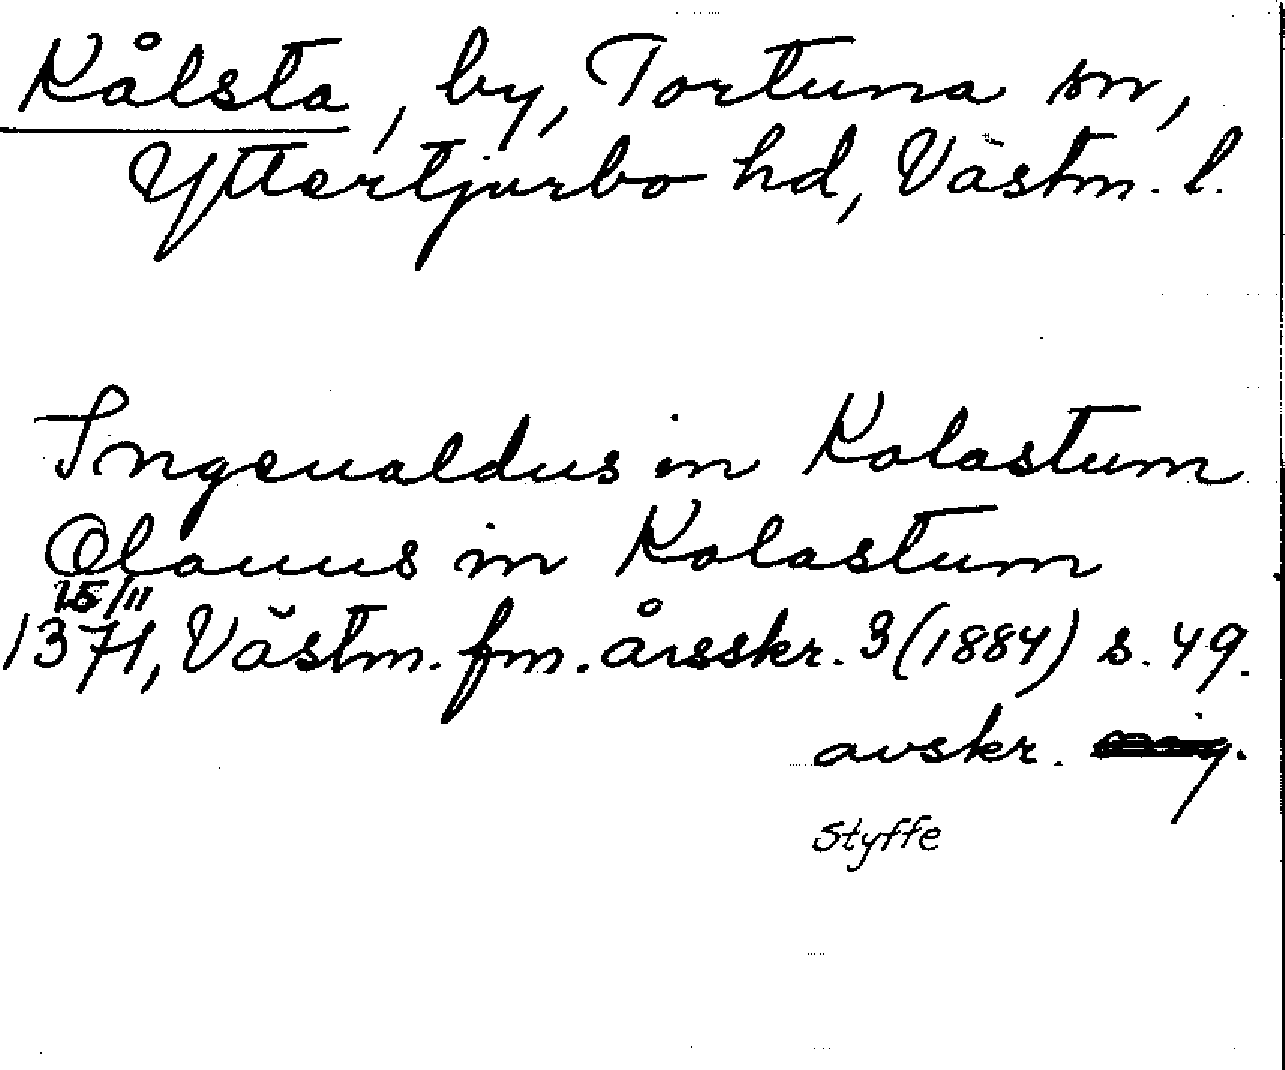 Kålsta, by, Tortuna sn,
Yttertjurbo hd, Västm. l.
Ingeualdus in Kolastum
Olauus in Kolastum
15/11
1371, Västm. fm. årsskr. 3 (1884) s. 49.
avskr.
Styffe